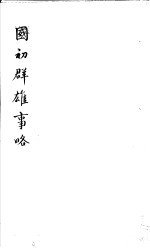 國初群雄事略